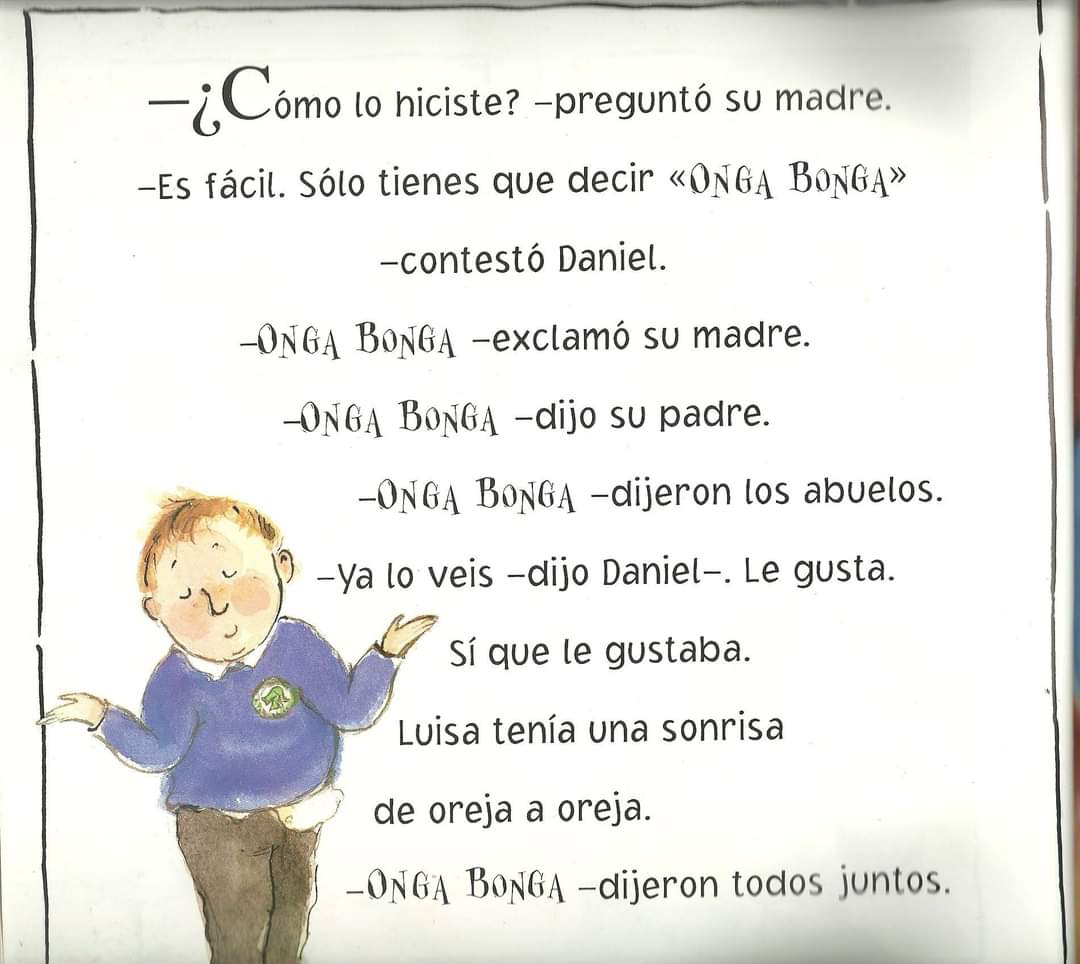 —¿Cómo lo hiciste? –preguntó su madre.
–Es fácil. Sólo tienes que decir «ONGA BONGA»
–contestó Daniel.
–ONGA BONGA –exclamó su madre.
–ONGA BONGA –dijo su padre.
–ONGA BONGA –dijeron los abuelos.
–Ya lo veis –dijo Daniel–. Le gusta.
Sí que le gustaba.
Luisa tenía una sonrisa
de oreja a oreja.
–ONGA BONGA –dijeron todos juntos.